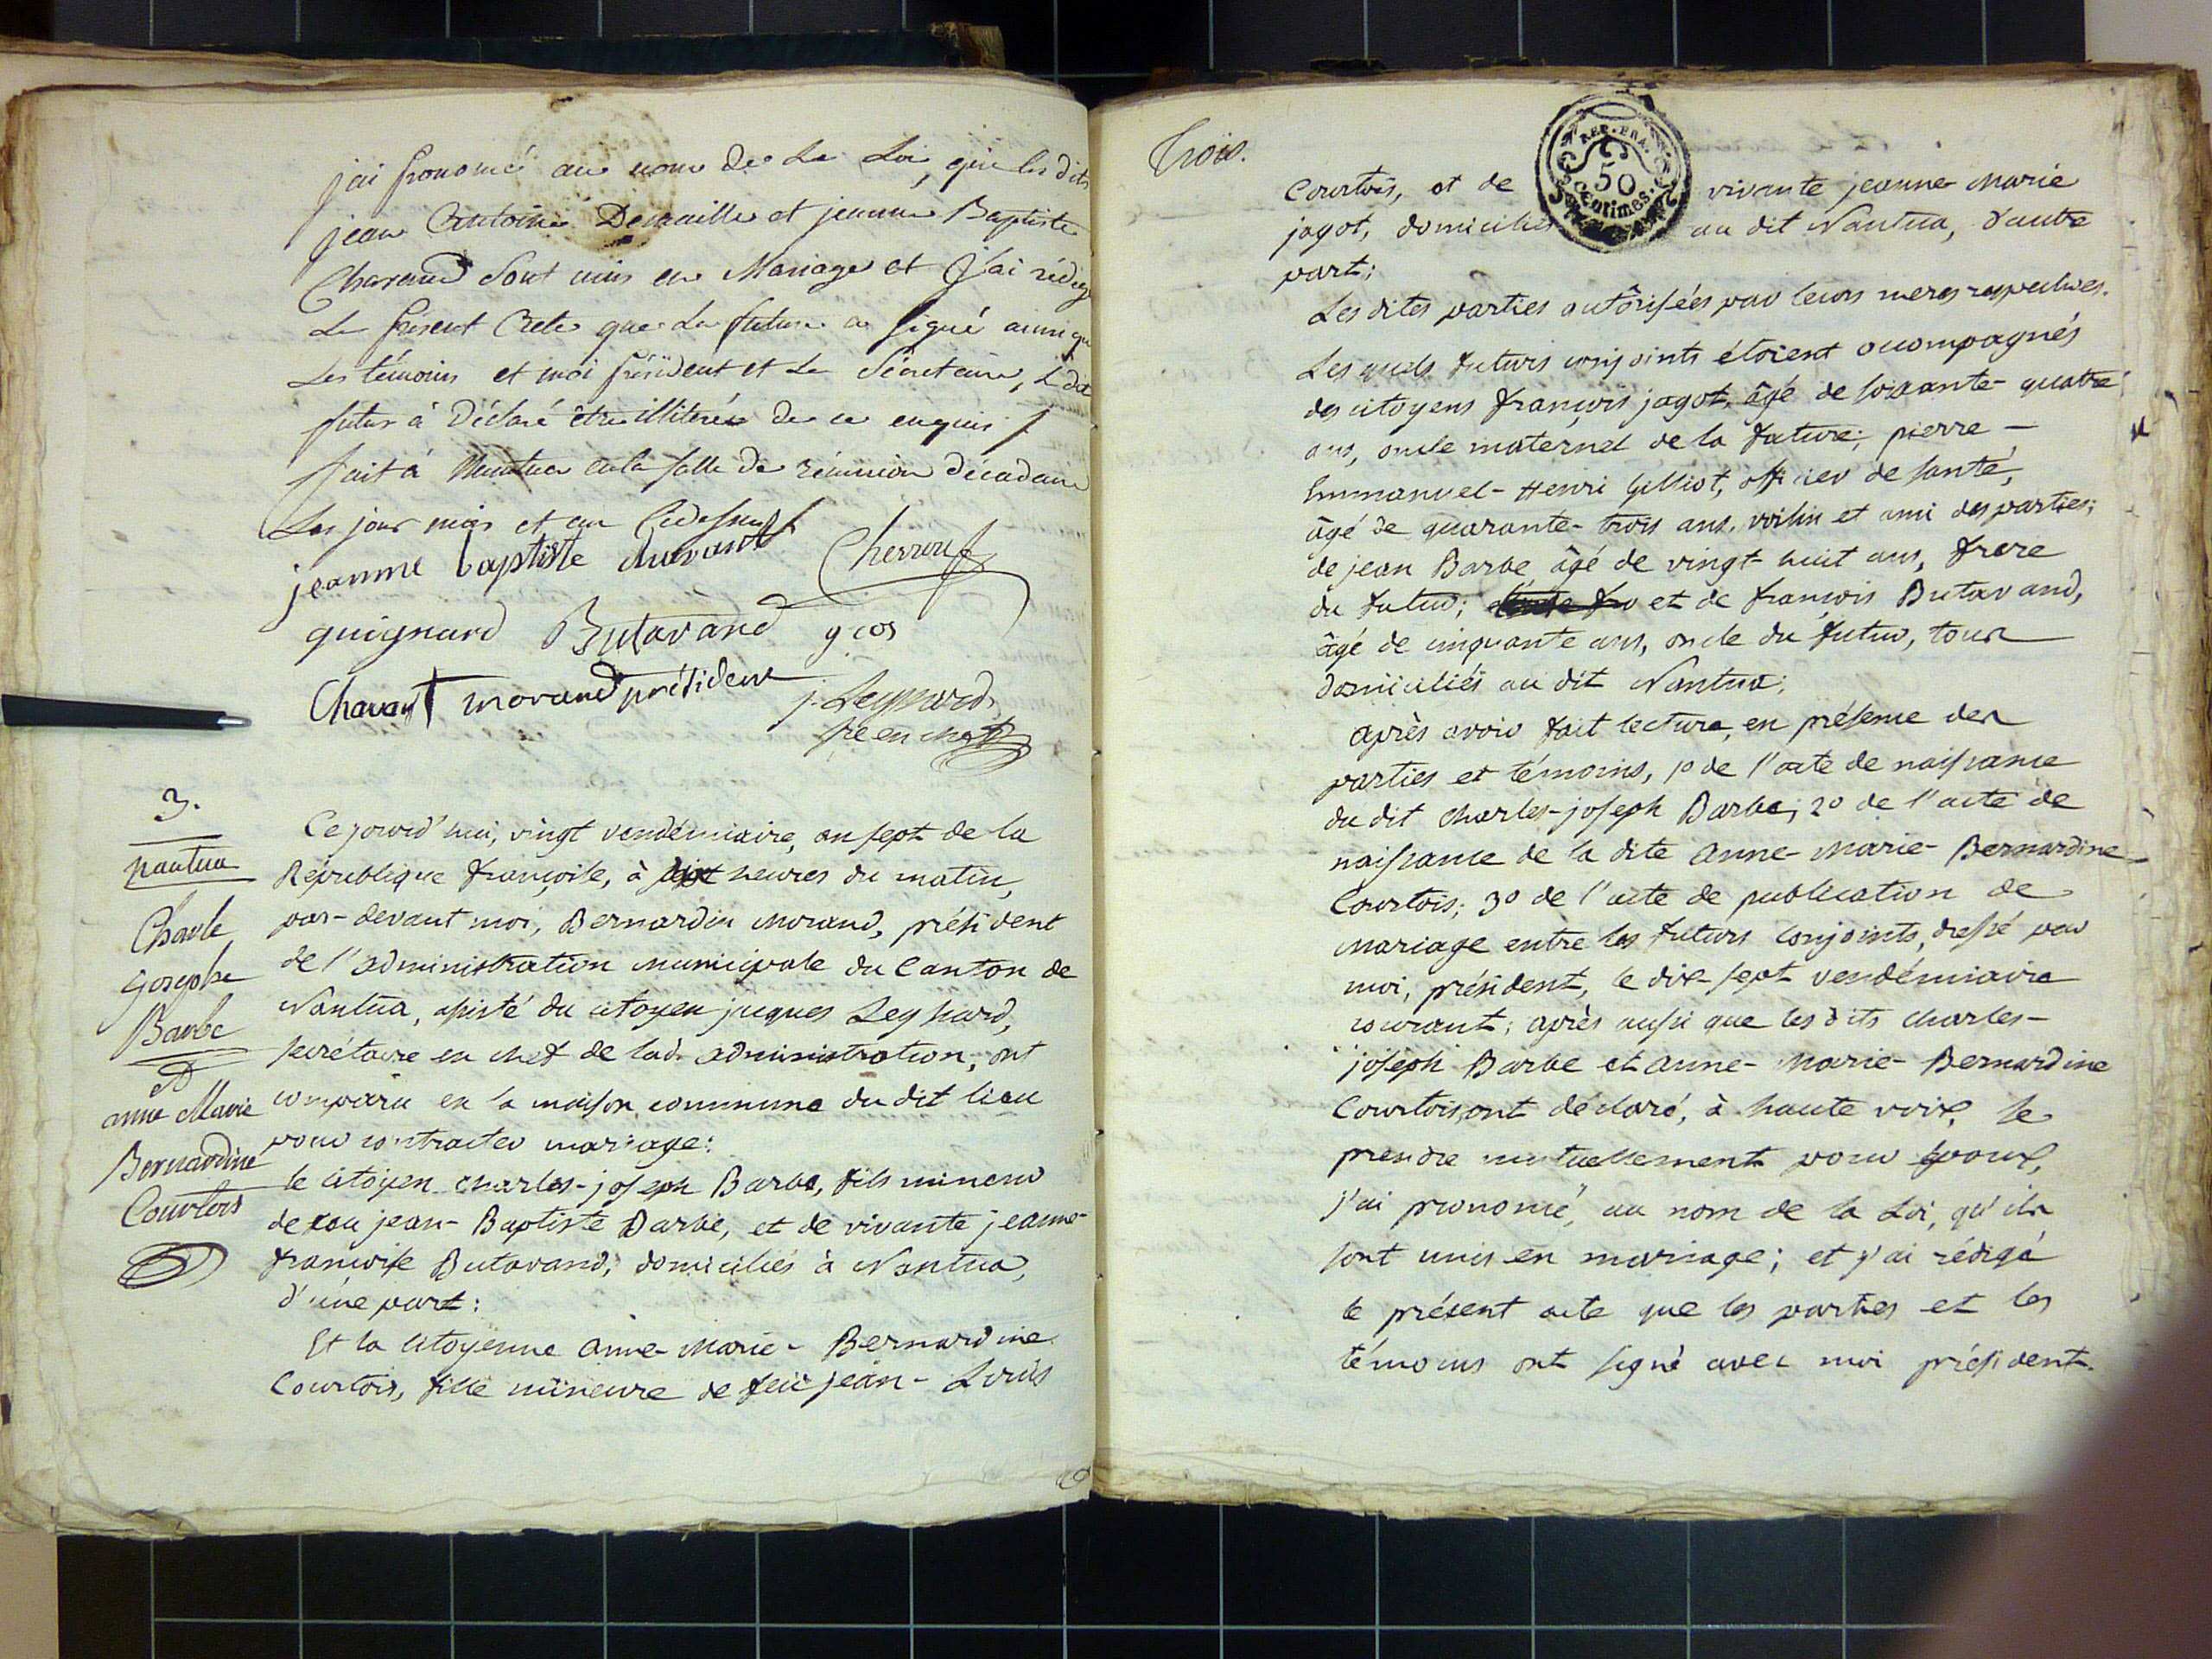 jai prononcé au nom de La Loi, que les dits
jean Antoine Demaille et jeanne Baptiste
Charvand sont unis en Mariage et J'ai rédigé
Le présent Acte que La future a signé ainsi que
Les témoins et moi président et Le Secrétaire, Le dit
futur à Déclaré être illiteré de ce enquis /
fait à Nantua en la salle de réunion décadaire
Les jour mois et an Cidessus
jeanne baptiste
quignard Butavand gcos
Chavant morand président j. Leyssard
sre en chef
3.
nantua
Charle
Josephe
Barbe
et
anne Marie
Bernardine
Courtois
Ce jourd'hui, vingt vendémiaire, an sept de la
République françoise, à heures du matin,
par-devant moi, Bernardin Morand, président
de l'administration municipale du Canton de
Nantua, assisté du citoyen jacques Leyssard,
secrétaire en chef de lad. administration; ont
comparu en la maison commune du dit lieu
pour contracter mariage:
le citoyen charles-joseph Barbe, fils mineur
de feu jean-Baptiste Barbe, et de vivante jeanne-
françoise Butavand, domiciliés à Nantua,
d'une part:
Et la citoyenne Anne-Marie-Bernardine
Courtois, fille mineure de feu jean-Louis
Trois.
REP. FRA.
50
Centimes.
Courtois, et de vivante jeanne-Marie
jagot, domiciliés au dit Nantua, d'autre
part;
Les dites parties autôrisées par leurs meres respectives.
Les quels futurs conjoints étoient accompagnés
des citoyens françois jagot, âgé de soixante-quatre
ans, oncle maternel de la future; pierre-
Emmanuel-Henri Gilliot, officier de santé,
âgé de quarante-trois ans, voisin et ami des parties;
de jean Barbe âgé de vingt-huit ans, frere
du futur; et de françois Butavand,
âgé de cinquante ans, oncle du futur, tous
domiciliés au dit Nantua;
après avoir fait lecture, en présence des
parties et témoins, 1º de l'acte de naissance
du dit charles-joseph Barbe; 2º de l'acte de
naissance de la dite Anne-Marie-Bernardine
Courtois; 3º de l'acte de publication de
mariage entre les futurs conjoints, dressé par
moi, président, le dix-sept vendémiaire
courant; après aussi que les dits charles-
joseph Barbe et anne-Marie-Bernardine
Courtois, ont déclaré, à haute voix, se
prendre mutuellement pour époux,
j'ai prononcé, au nom de la Loi, qu'ils
sont unis en mariage; et j'ai rédigé
le présent acte que les parties et les
témoins ont signé avec moi président.